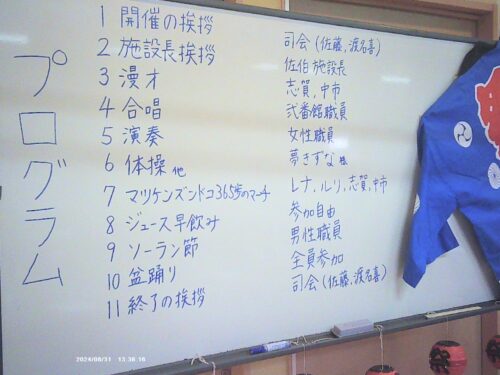 プログラム
1 開催の挨拶 司会(佐藤,渡名喜)
2 施設長挨拶 佐伯施設長
3 漫才 志賀,中市
4 合唱 弐番館職員
5 演奏 女性職員
6 体操 他 夢きずな 様
7 マツケンズンドコ365歩のマーチ レナ,ルリ,志賀,中市
8 ジュース早飲み 参加自由
9 ソーラン節 男性職員
10 盆踊り 全員参加
11 終了の挨拶 司会(佐藤,渡名喜)
2024/08/31 13:36:16